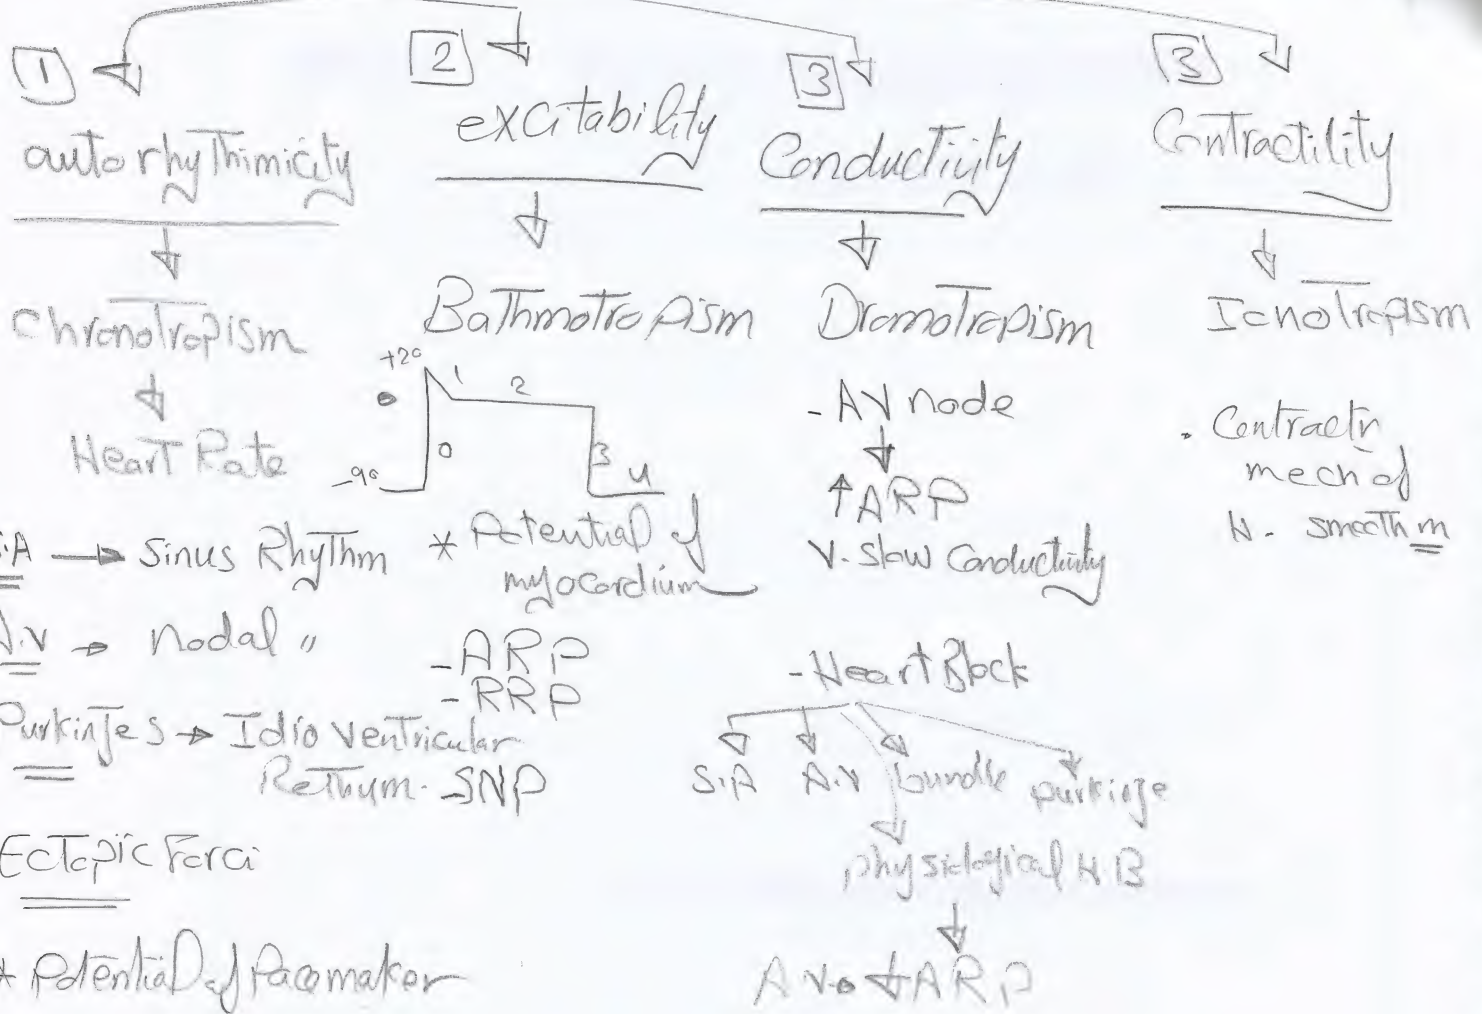 1
autorhythimicity
Chronotropism
Heart Rate
S.A → Sinus Rhythm
A.V → nodal "
Purkinjes → Idio ventricular
Rethym.
Ectopic Forci
* Potential of Pacemaker
2
excitability
Bathmotropism
+20
0
-90
0 1 2 3 4
* Potential of
myocardium
- ARP
- RRP
- SNP
3
Conductivity
Dromotropism
- AV node
↑ ARP
V. Slow Conductivity
- Heart Block
S.A A.V bundle purkinje
physiological H.B
A.V. ARP
3
Contractility
Ionotropism
. Contractn
mech of
H. smooth m